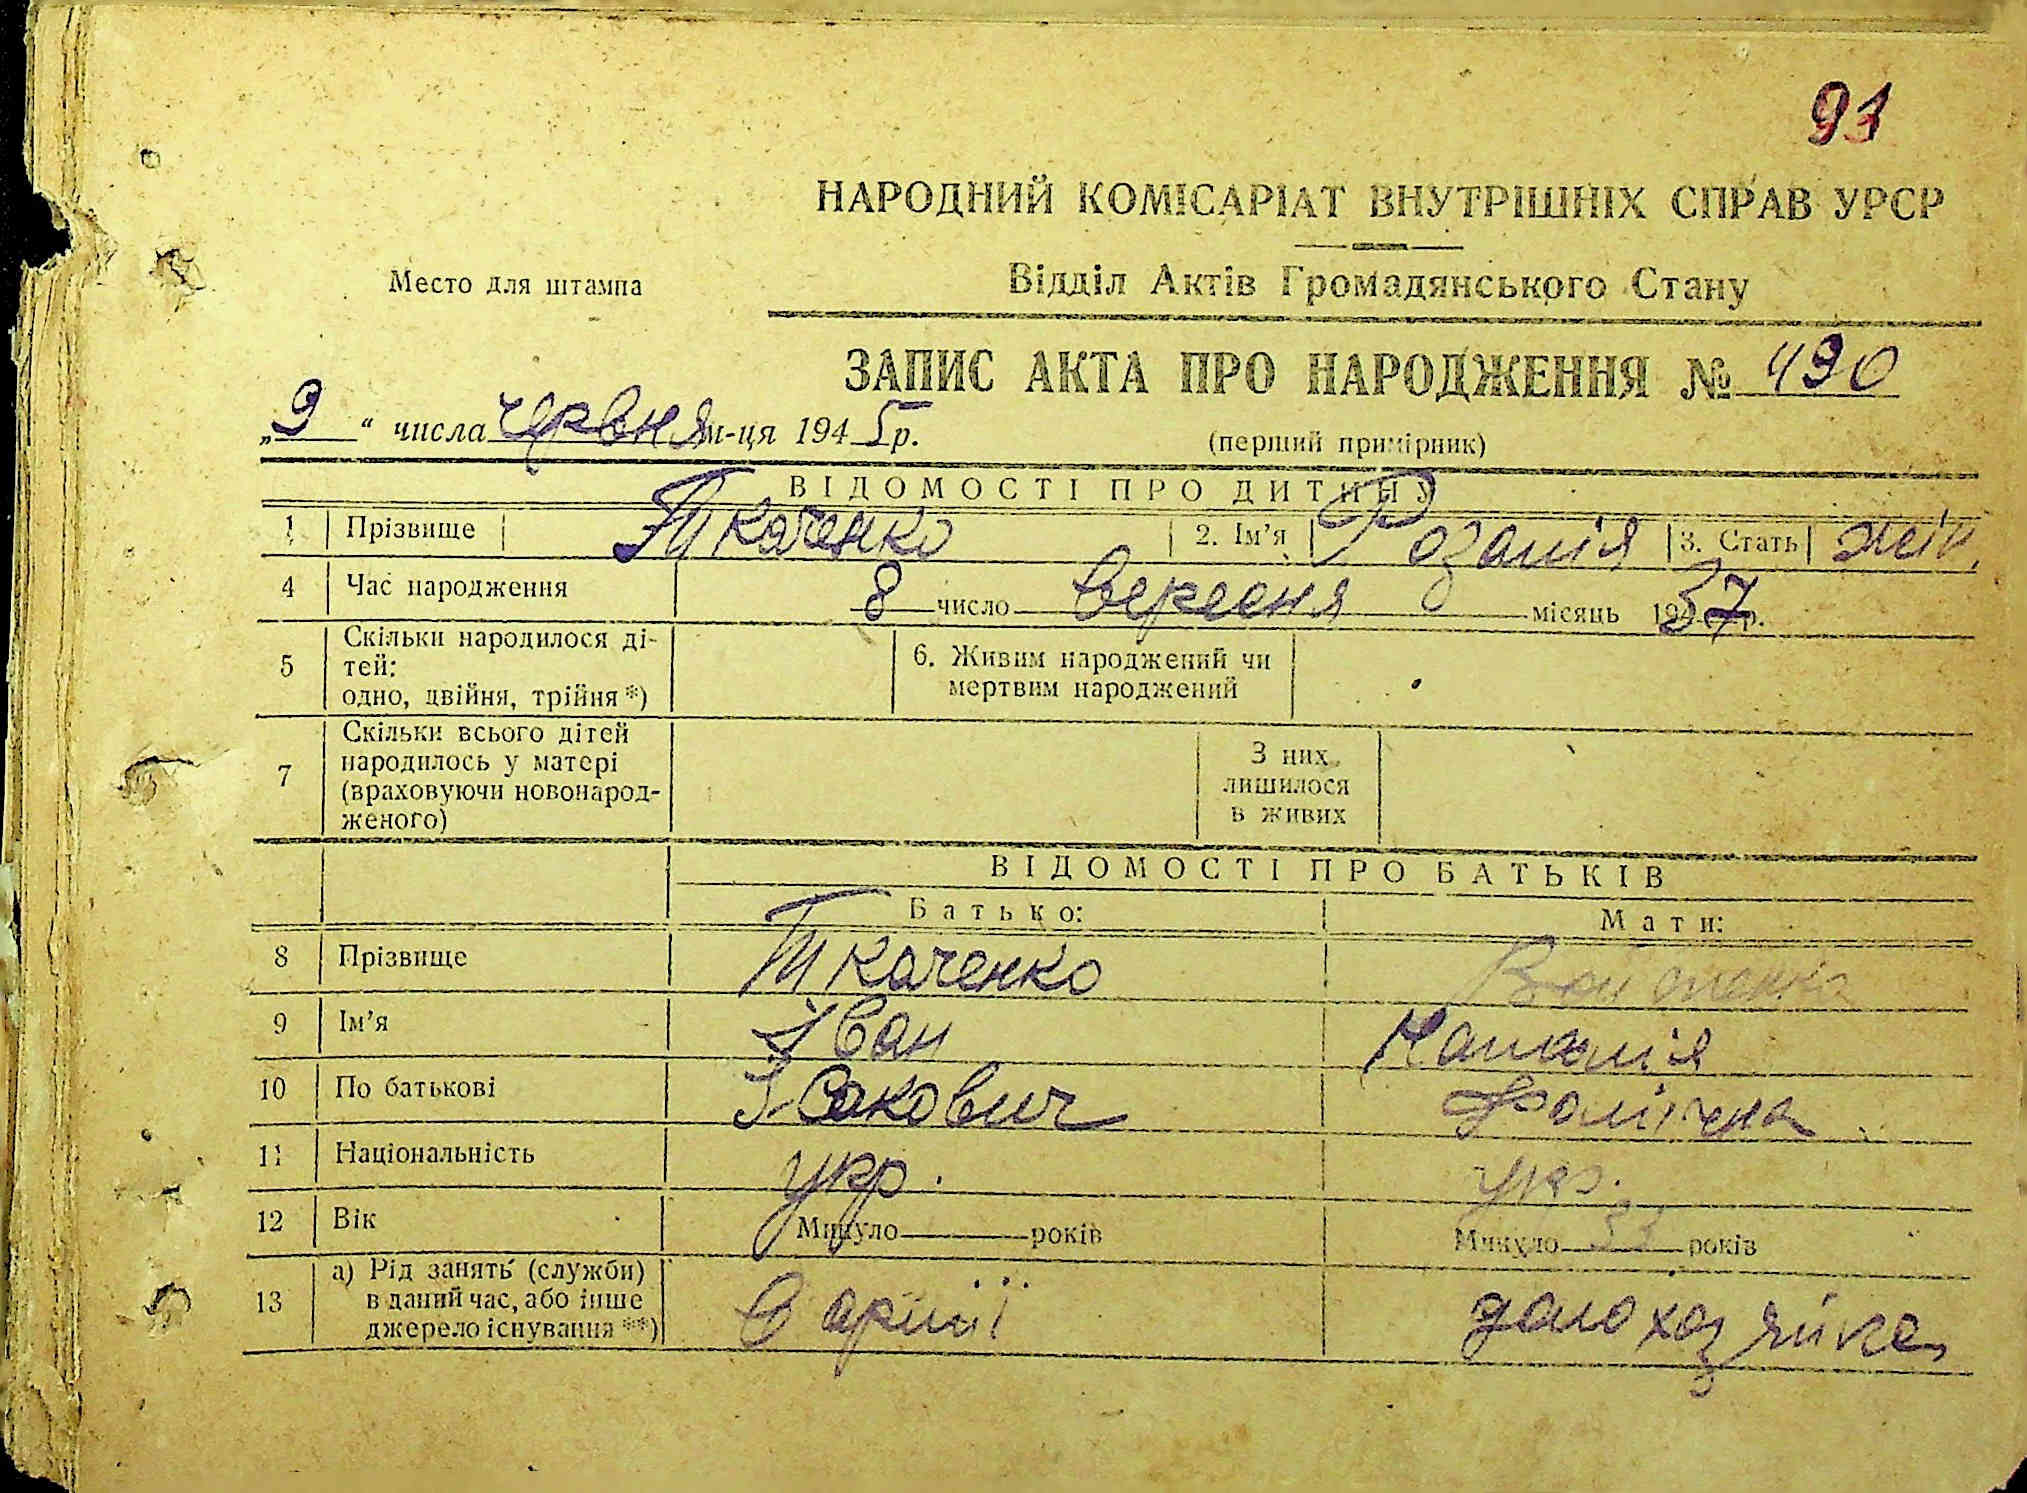 91
НАРОДНИЙ КОМІСАРІАТ ВНУТРІШНІХ СПРАВ УРСР
Место для штампа
Відділ Актів Громадянського Стану
ЗАПИС АКТА ПРО НАРОДЖЕННЯ № 490
„9“ числа червня м-ця 1945р.
(перший примірник)
ВІДОМОСТІ ПРО ДИТИНУ
1 Прізвище Ткаченко 2. Ім’я Розалія 3. Стать жін.
4 Час народження 8 число вересня місяць 1937 р.
5 Скільки народилося ді-
тей:
одно, двійня, трійня*)
6. Живим народжений чи
мертвим народжений
7 Скільки всього дітей
народилось у матері
(враховуючи новонарод-
женого)
З них
лишилося
в живих
ВІДОМОСТІ ПРО БАТЬКІВ
Батько: Мати:
8 Прізвище Ткаченко
9 Ім’я Іван Наталія
10 По батькові Ісакович
11 Національність укр. укр.
12 Вік Минуло років Минуло 33 років
13 а) Рід занять (служби)
в даний час, або інше
джерело існування**)
в армії домохазяйка